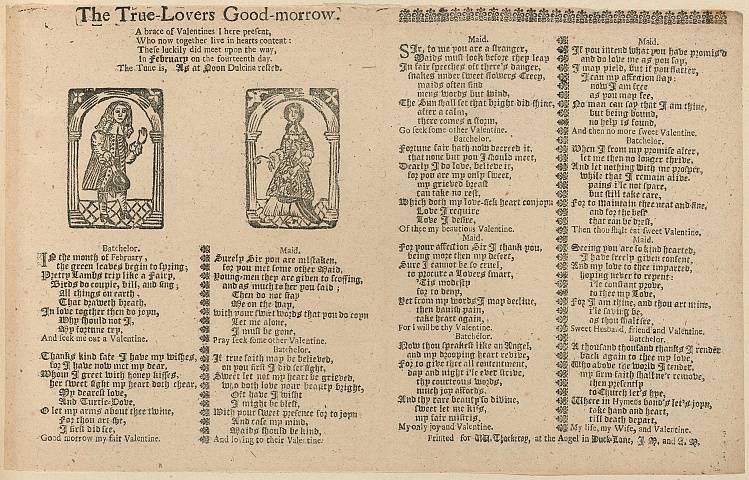 The True-Lovers Good-morrow.
A brace of Valentines I here present,
Who now together live in hearts content:
These luckily did meet upon the way,
In February on the fourteenth day.
The Tune is, As at Noon Dulcina rested.
Batchelor.
IN the month of February,
the green leaves begin to spring;
Pretty Lambs trip like a Fairy,
Birds do couple, bill, and sing;
All things on earth,
That draweth breath,
In love together then do joyn,
Why should not I,
My fortune try,
And seek me out a Valentine.
Thanks kind fate I have my wishes,
for I have now met my dear.
Whom I greet with honey kisses,
her sweet sight my heart doth chear,
My dearest love,
And Turtle-Dove,
O let my arms about thee twine,
For thou art she,
I first did see,
Good morrow my fair Valentine.
Maid.
Surely Sir you are mistaken,
for you met some other Maid,
Young-men they are given to scoffing,
and as much to her you said;
Then do not stay
Me on the way,
with your sweet words that you do coyn
Let me alone,
I must be gone,
Pray seek some other Valentine.
Batchelor.
If true faith may be believed,
on you first I did set sight,
Sweet let not my heart be grieved,
who doth love your beauty bright,
Oft have I wisht
I might be blest,
With your sweet presence for to joyn
And ease my mind,
Maids should be kind,
And loving to their Valentine.
Maid.
SIr, to me you are a stranger,
Maids must look before they leap
In fair speeches oft there's danger,
snakes under sweet flowers Creep,
maids often find
mens words but wind,
The Sun shall set that bright did shine,
after a calm,
there comes a storm,
Go seek some other Valentine.
Batchelor.
Fortune fair hath now decreed it.
that none but you I should meet,
Dearly I do love, believe it,
for you are my only sweet,
my grieved breast
can take no rest,
Which doth my love-sick heart conjoyn
Love I require
Love I desire,
Of thee my beautious Valentine.
Maid.
For your affection Sir I thank you,
being more then my desert,
Sure I cannot be so cruel,
to procure a Lovers smart,
'Tis modesty
for to deny,
Yet from my words I may decline,
then banish pain,
take heart again,
For I will be thy Valentine.
Batchelor.
Now thou speakest like an Angel,
and my drooping heart revive,
For to give thee all contentment,
day and night I'le ever strive,
thy courteous words,
much joy affords,
And thy rare beauty so divine,
sweet let me kiss,
my fair mistris,
My only joy and Valentine.
Maid.
If you intend what you have promis'd
and do love me as you say,
I may yield, but if you flatter,
I can my affection stay:
now I am free
as you may see,
No man can say that I am thine,
but being bound,
no help is found,
And then no more sweet Valentine.
Batchelor.
When I from my promise alter,
let me then no longer thrive,
And let nothing with me prosper,
while that I remain alive.
pains i'le not spare,
but still take care,
For to maintain thee neat and fine,
and for the best
that can be drest,
Then thou shalt eat sweet Valentine.
Maid.
Seeing you are so kind hearted,
I have freely given consent,
And my love to thee imparted,
hoping never to repent:
I'le constant prove,
to thee my Love,
For I am thine, and thou art mine,
i'le loving be,
as thou shalt see,
Sweet Husband, friend and Valentine.
Batchelor.
A thousand thousand thanks I render
back again to thee my love,
Who above the world I tender,
my firm faith shall ne'r remove,
then presently
to Church let's hye,
Where in Hymens bands let's joyn,
take hand and heart,
till death depart,
My life, my Wife, and Valentine.
Printed for W. Thackeray, at the Angel in Duck-Lane, J. M. and A. M.